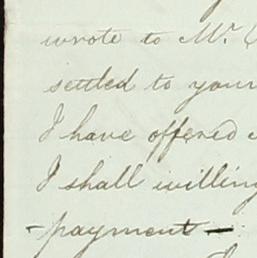 wrote to Mr.
settled to your
I have offered
I shall willing
-payment-